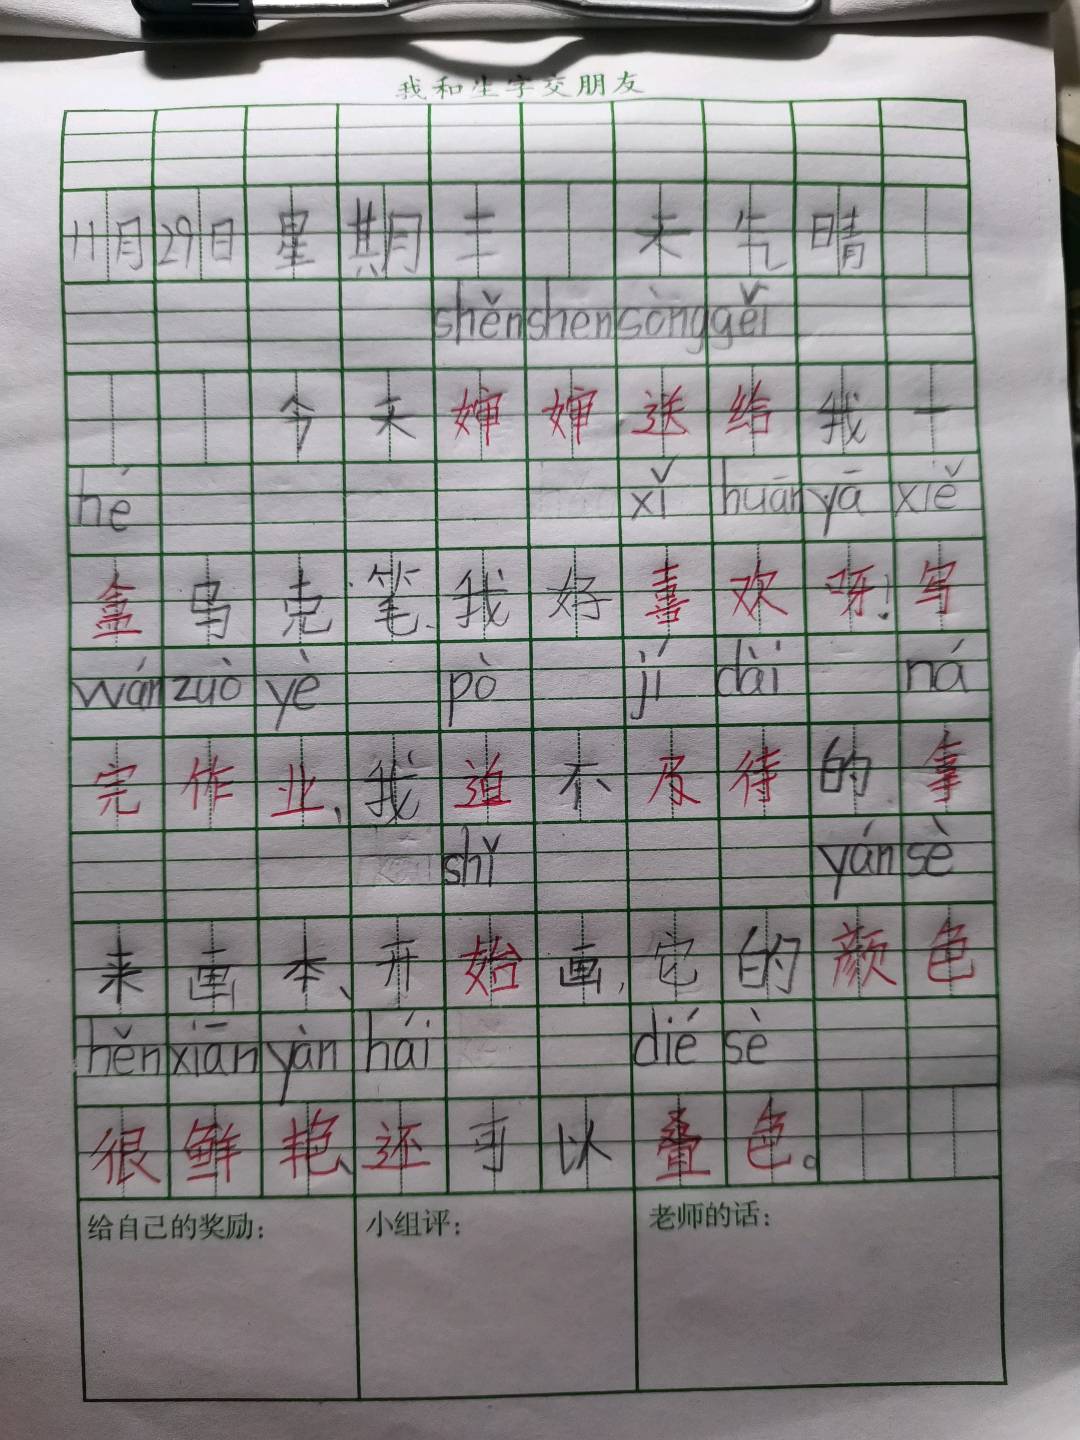 我和生字交朋友
11月29日星期三 天气晴
shěn shen sòng gěi
今天婶婶送给我一
hé xǐ huān yā xiě
盒马克笔、我好喜欢呀!写
wán zuò yè pò jí dài ná
完作业、我迫不及待的拿
shǐ yán sè
来画本、开始画,它的颜色
hěn xiān yàn hái dié sè
很鲜艳、还可以叠色。
给自己的奖励: 小组评: 老师的话: